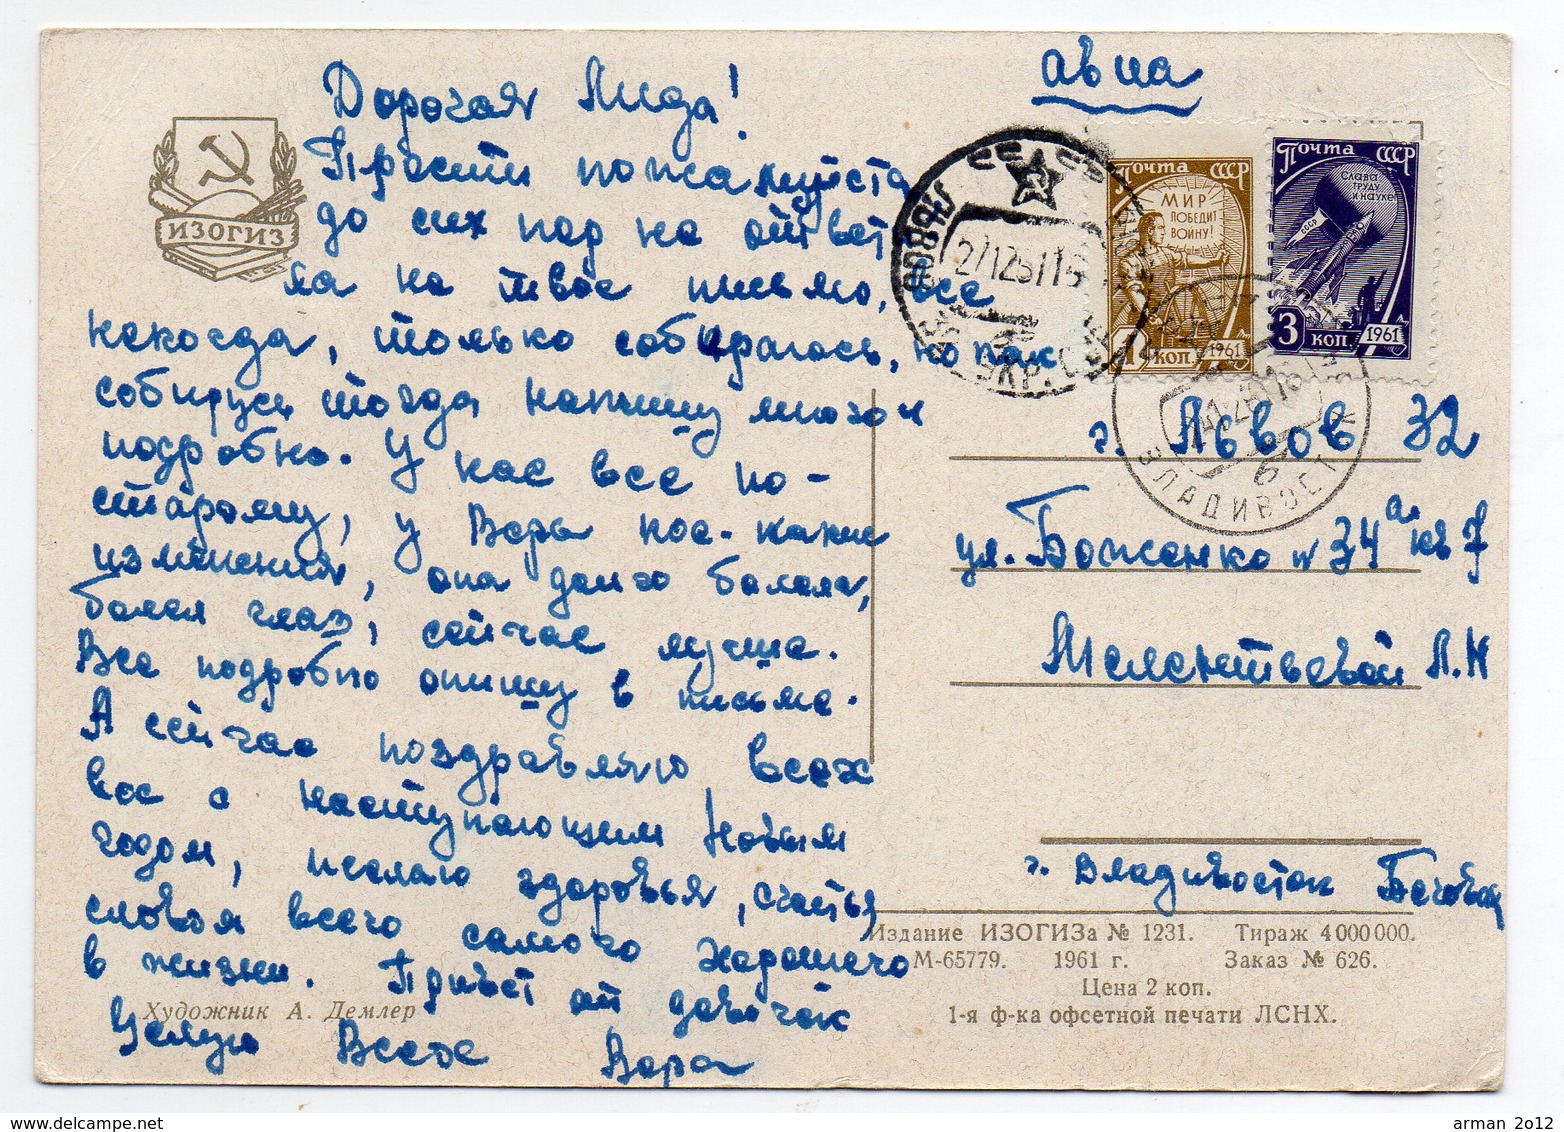 Дорогая Лида!
Прости пожалуйста
до сих пор не ответи
ла на твое письмо, все
некогда, только собиралась, но как
соберусь тогда напишу много и
подробно. У нас все по-
старому, у Веры кое-какие
изменения, она долго болела,
болел глаз, сейчас лучше.
Все подробно опишу в письме.
А сейчас поздравляю всех
вас с наступающим Новым
годом, желаю здоровья, счастья
словом всего самого хорошего
в жизни. Привет от девочек
Целую Всех Вера
ИЗОГИЗ
Художник А. Демлер
авиа
ПОЧТА СССР
МИР
ПОБЕДИТ
ВОЙНУ!
КОП 1961
ПОЧТА СССР
СЛАВА
ТРУДУ
И НАУКЕ
3 КОП 1961
ЛЬВОВ
ВЛАДИВОСТ
г. Львов 32
ул. Боженко № 34а кв 7
Мелентьевой Л.Н
г. Владивосток
Издание ИЗОГИЗа № 1231. Тираж 4 000 000.
М-65779. 1961 г. Заказ № 626.
Цена 2 коп.
1-я ф-ка офсетной печати ЛСНХ.
arman_2012